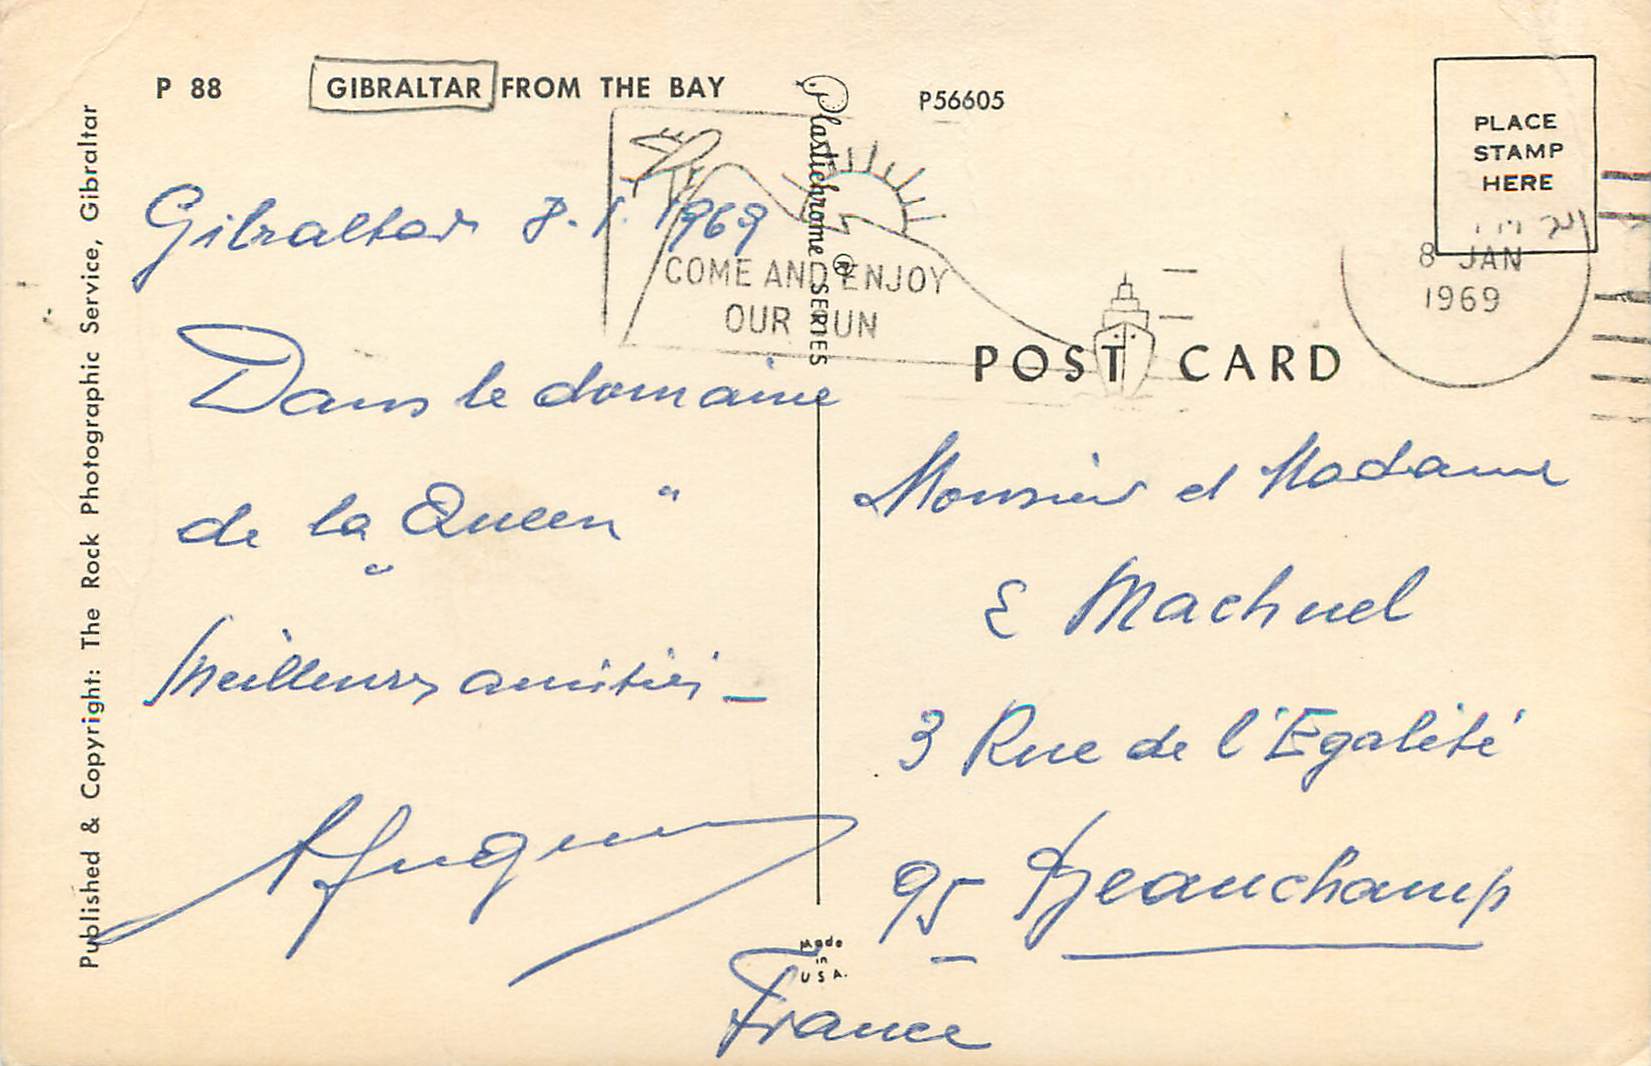 P 88 GIBRALTAR FROM THE BAY
P56605
PLACE
STAMP
HERE
8 JAN
1969
Plastichrome ® SERIES
COME AND ENJOY
OUR SUN
POST CARD
Published & Copyright: The Rock Photographic Service, Gibraltar
Gibraltar 8.1.1969
Dans le domaine
de la "Queen"
Meilleures amitiés –
Monsieur et Madame
E Machuel
3 Rue de l'Egalité
95 Beauchamp
France
Made
in
USA.